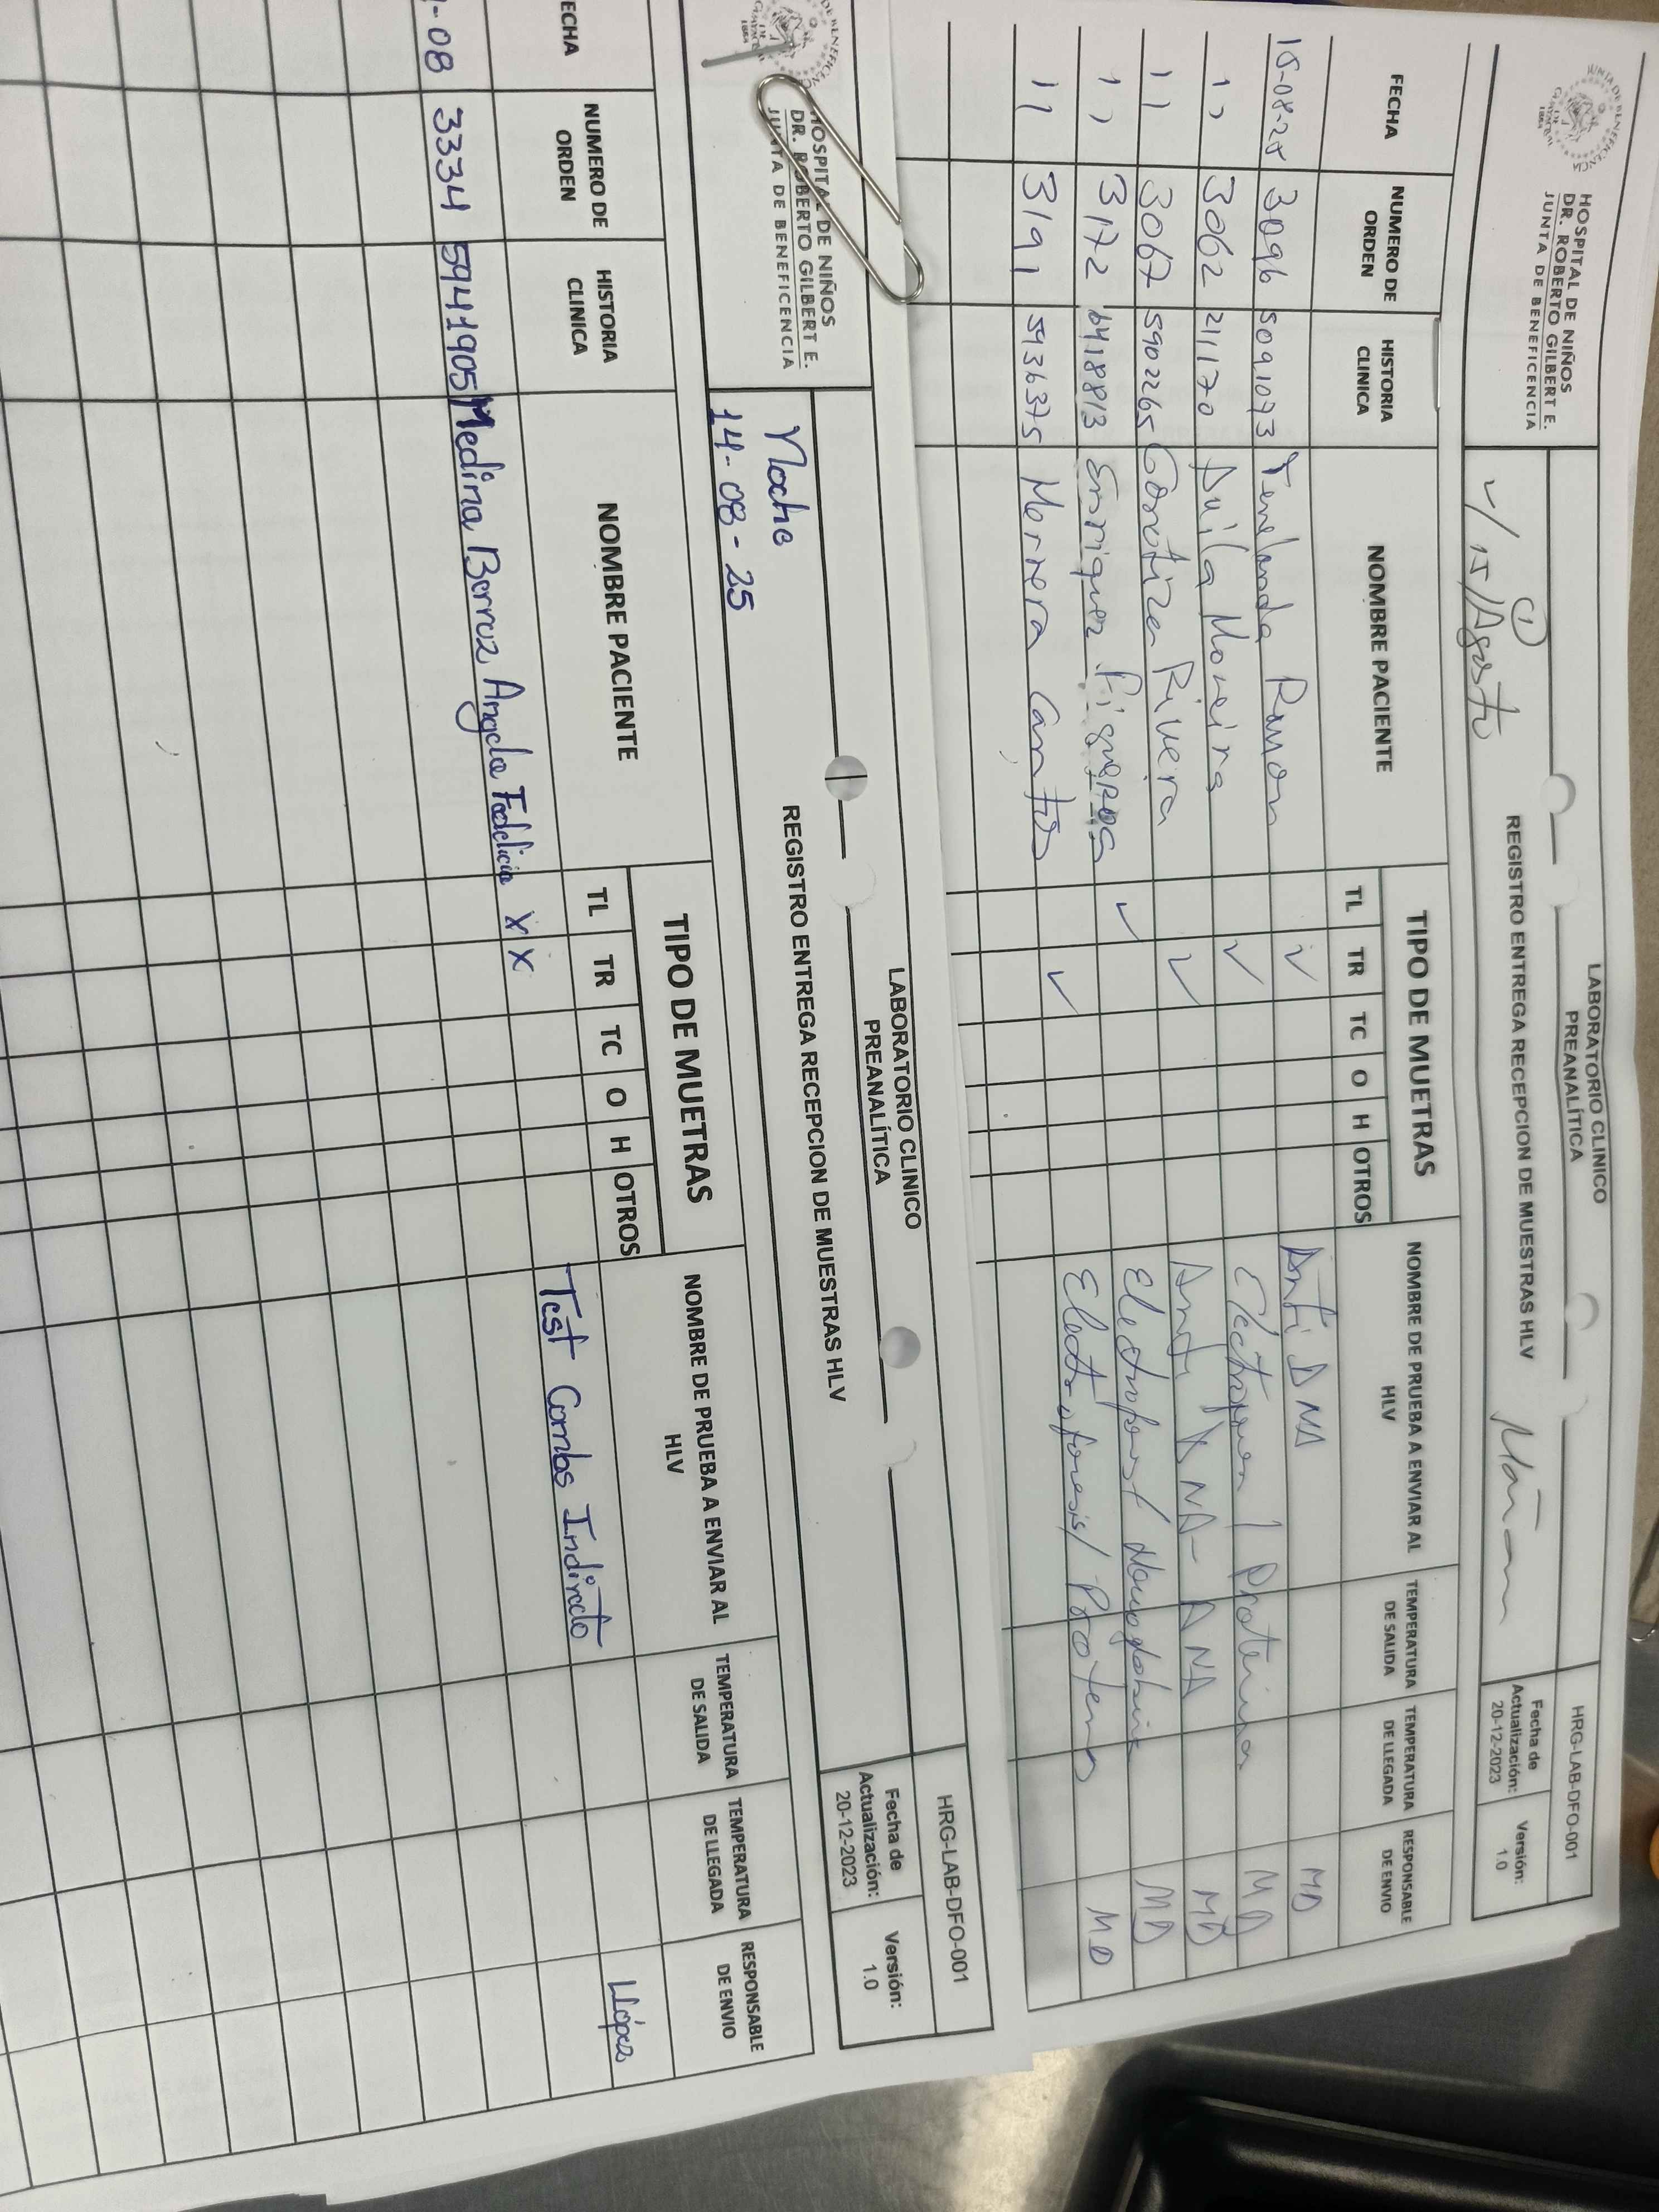 HOSPITAL DE NIÑOS
DR. ROBERTO GILBERT E.
JUNTA DE BENEFICENCIA
LABORATORIO CLINICO
PREANALÍTICA
HRG-LAB-DFO-001
REGISTRO ENTREGA RECEPCION DE MUESTRAS HLV
Fecha de Actualización: 20-12-2023
Versión: 1.0
V/15/Agosto
FECHA NUMERO DE ORDEN HISTORIA CLINICA NOMBRE PACIENTE TIPO DE MUETRAS NOMBRE DE PRUEBA A ENVIAR AL HLV TEMPERATURA DE SALIDA TEMPERATURA DE LLEGADA RESPONSABLE DE ENVIO
TL TR TC O H OTROS
15-08-25 3096 5091073 Ramon ✓ Anti DNA MD
11 3062 211170 Avila Moreira ✓ Proteinas MD
11 3067 5902265 Rivera ✓ ANA MD
11 3172 6418813 Enriquez Figueroa ✓ MD
11 3191 5936375 Morrera Cantos ✓ Electroforesis/ Proteinas MD
HOSPITAL DE NIÑOS
DR. ROBERTO GILBERT E.
JUNTA DE BENEFICENCIA
LABORATORIO CLINICO
PREANALÍTICA
HRG-LAB-DFO-001
REGISTRO ENTREGA RECEPCION DE MUESTRAS HLV
Fecha de Actualización: 20-12-2023
Versión: 1.0
Noche
14-08-25
ECHA NUMERO DE ORDEN HISTORIA CLINICA NOMBRE PACIENTE TIPO DE MUETRAS NOMBRE DE PRUEBA A ENVIAR AL HLV TEMPERATURA DE SALIDA TEMPERATURA DE LLEGADA RESPONSABLE DE ENVIO
TL TR TC O H OTROS
-08 3334 5941905 Medina Berroz Angela x x Test Combs Indirecto LLópez